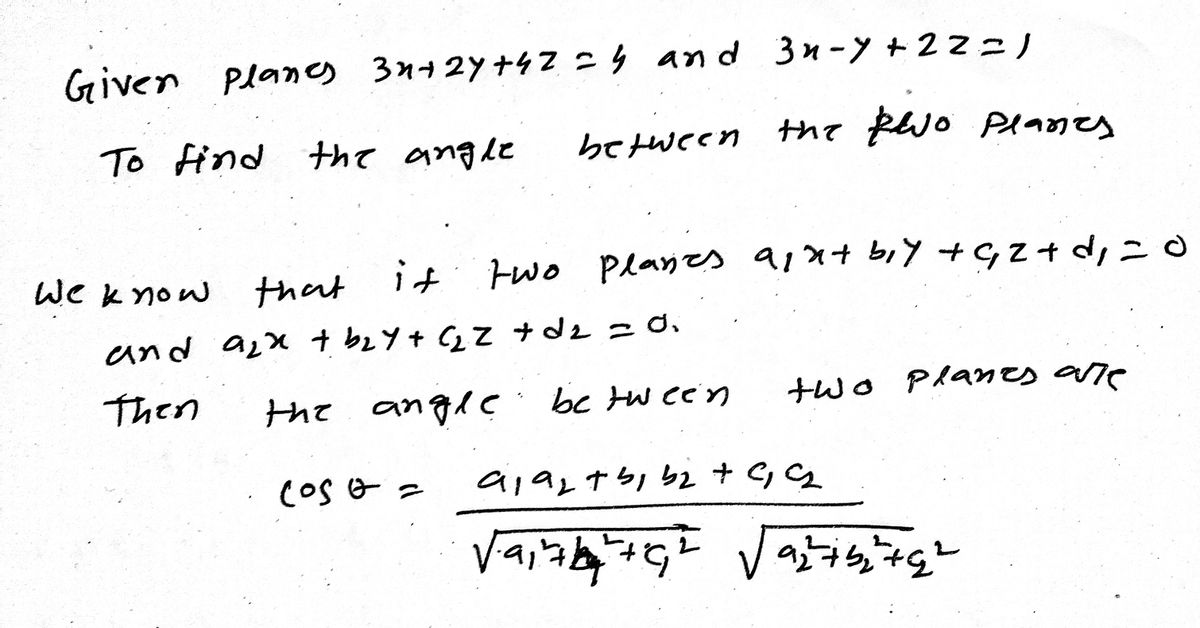 Given planes 3x+2y+4z=4 and 3x-y+2z=1
To find the angle between the two planes
We know that if two planes a₁x+b₁y+c₁z+d₁=0
and a₂x+b₂y+c₂z+d₂=0.
Then the angle between two planes are
cos θ = (a₁a₂+b₁b₂+c₁c₂) / (√(a₁²+b₁²+c₁²) √(a₂²+b₂²+c₂²))